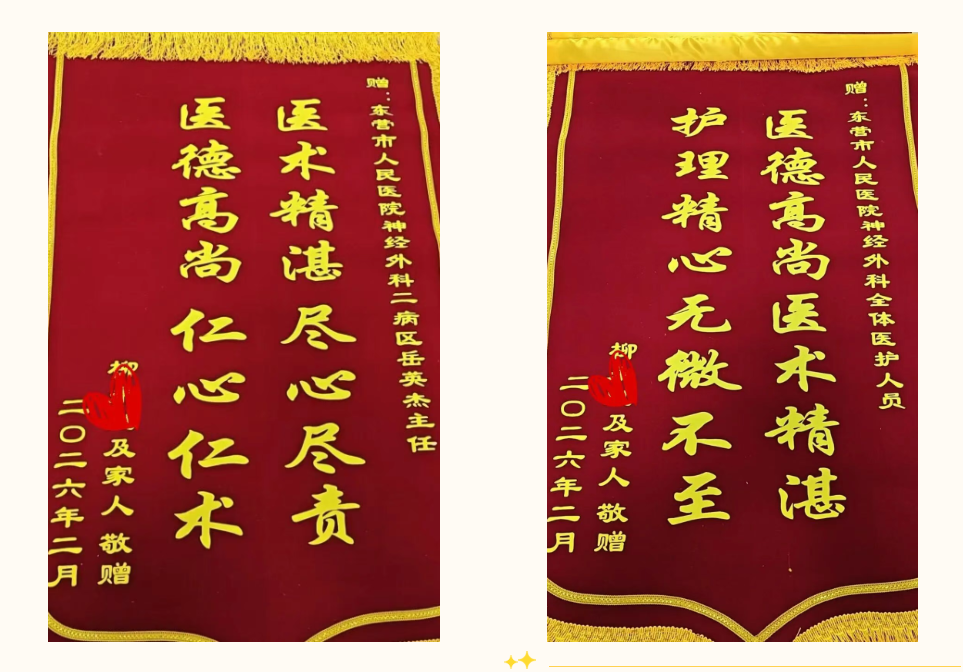 赠：东营市人民医院神经外科二病区岳英杰主任
医术精湛尽心尽责
医德高尚仁心仁术
柳
及家人 敬赠
二〇二六年二月
赠：东营市人民医院神经外科全体医护人员
医德高尚医术精湛
护理精心无微不至
柳
及家人 敬赠
二〇二六年二月